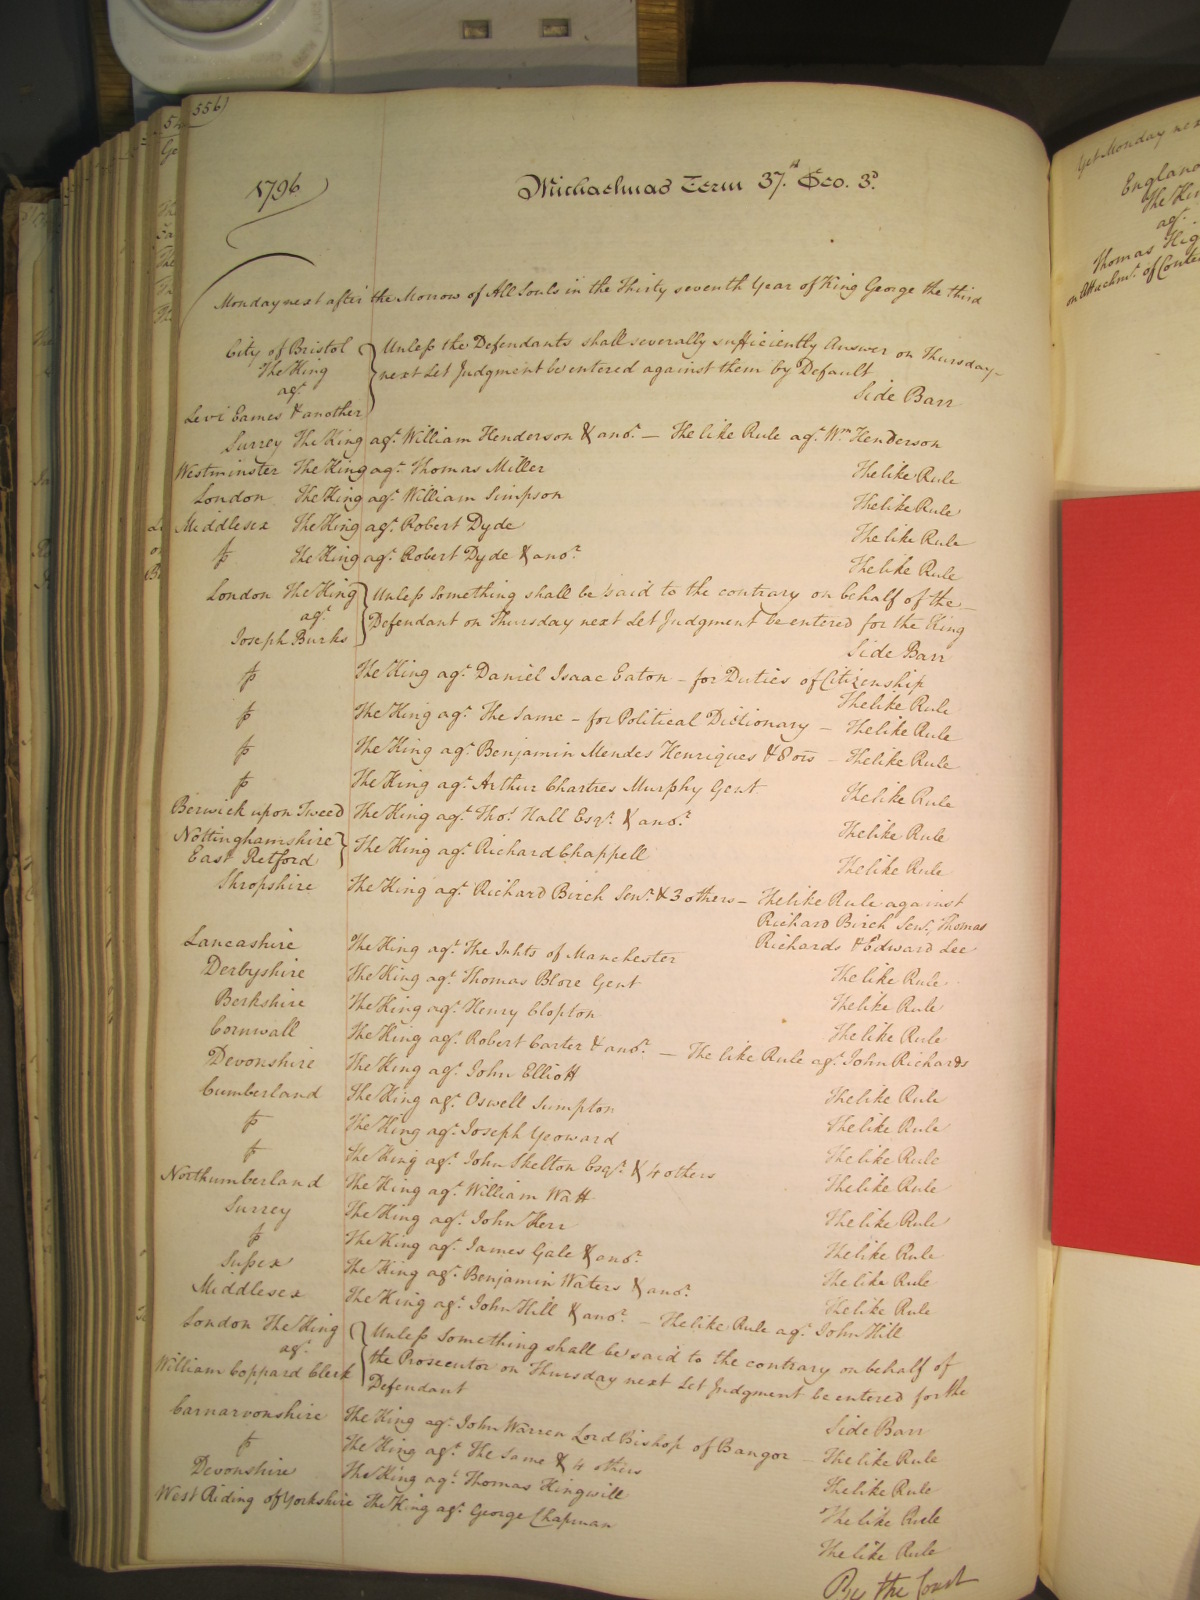 556)
1796
Michaelmas Term 37th Geo. 3d.
Monday next after the Morrow of All Souls in the Thirty seventh Year of King George the third
City of Bristol
The King
agt
Levi Eames & another
Unless the Defendants shall severally sufficiently Answer on Thursday
next Let Judgment be entered against them by Default
Side Barr
Surrey The King agt William Henderson & anor. — The like Rule agt Wm Henderson
Westminster The King agt Thomas Miller The like Rule
London The King agt William Simpson The like Rule
Middlesex The King agt Robert Dyde The like Rule
The King agt Robert Dyde & anor. The like Rule
London The King
agt
Joseph Burks
Unless Something shall be said to the contrary on behalf of the
Defendant on Thursday next Let Judgment be entered for the King
Side Barr
The King agt Daniel Isaac Eaton – for Duties of Citizenship
The like Rule
The King agt The Same – for Political Dictionary – The like Rule
The King agt Benjamin Mendes Henriques & 8 ors – The like Rule
The King agt Arthur Chartres Murphy Gent. The like Rule
Berwick upon Tweed The King agt Thos. Hall Esqr. & anor. The like Rule
Nottinghamshire
East Retford
The King agt Richard Chappell The like Rule
Shropshire The King agt Richard Birch Senr. & 3 others – The like Rule against
Richard Birch Senr, Thomas
Richards & Edward Lee
Lancashire The King agt The Inhts of Manchester The like Rule
Derbyshire The King agt Thomas Blore Gent The like Rule
Berkshire The King agt Henry Clopton The like Rule
Cornwall The King agt Robert Carter & anor. — The like Rule agt John Richards
Devonshire The King agt John Elliott The like Rule
Cumberland The King agt Oswell Sumpton The like Rule
The King agt Joseph Yeoward The like Rule
The King agt John Skelton Esqr. & 4 others The like Rule
Northumberland The King agt William Watt The like Rule
Surrey The King agt John Kerr The like Rule
The King agt James Gale & anor. The like Rule
Sussex The King agt Benjamin Waters & anor. The like Rule
Middlesex The King agt John Hill & anor. – The like Rule agt John Hill
London The King
agt
William Coppard Clerk
Unless Something shall be said to the contrary on behalf of
the Prosecutor on Thursday next Let Judgment be entered for the
Defendant
Side Barr
Carnarvonshire The King agt John Warren Lord Bishop of Bangor – The like Rule
The King agt The Same & 4 others The like Rule
Devonshire The King agt Thomas Kingwill The like Rule
West Riding of Yorkshire The King agt George Chapman The like Rule
By the Court
Yet Monday
England
The
agt
Thomas
on Attachmt. of